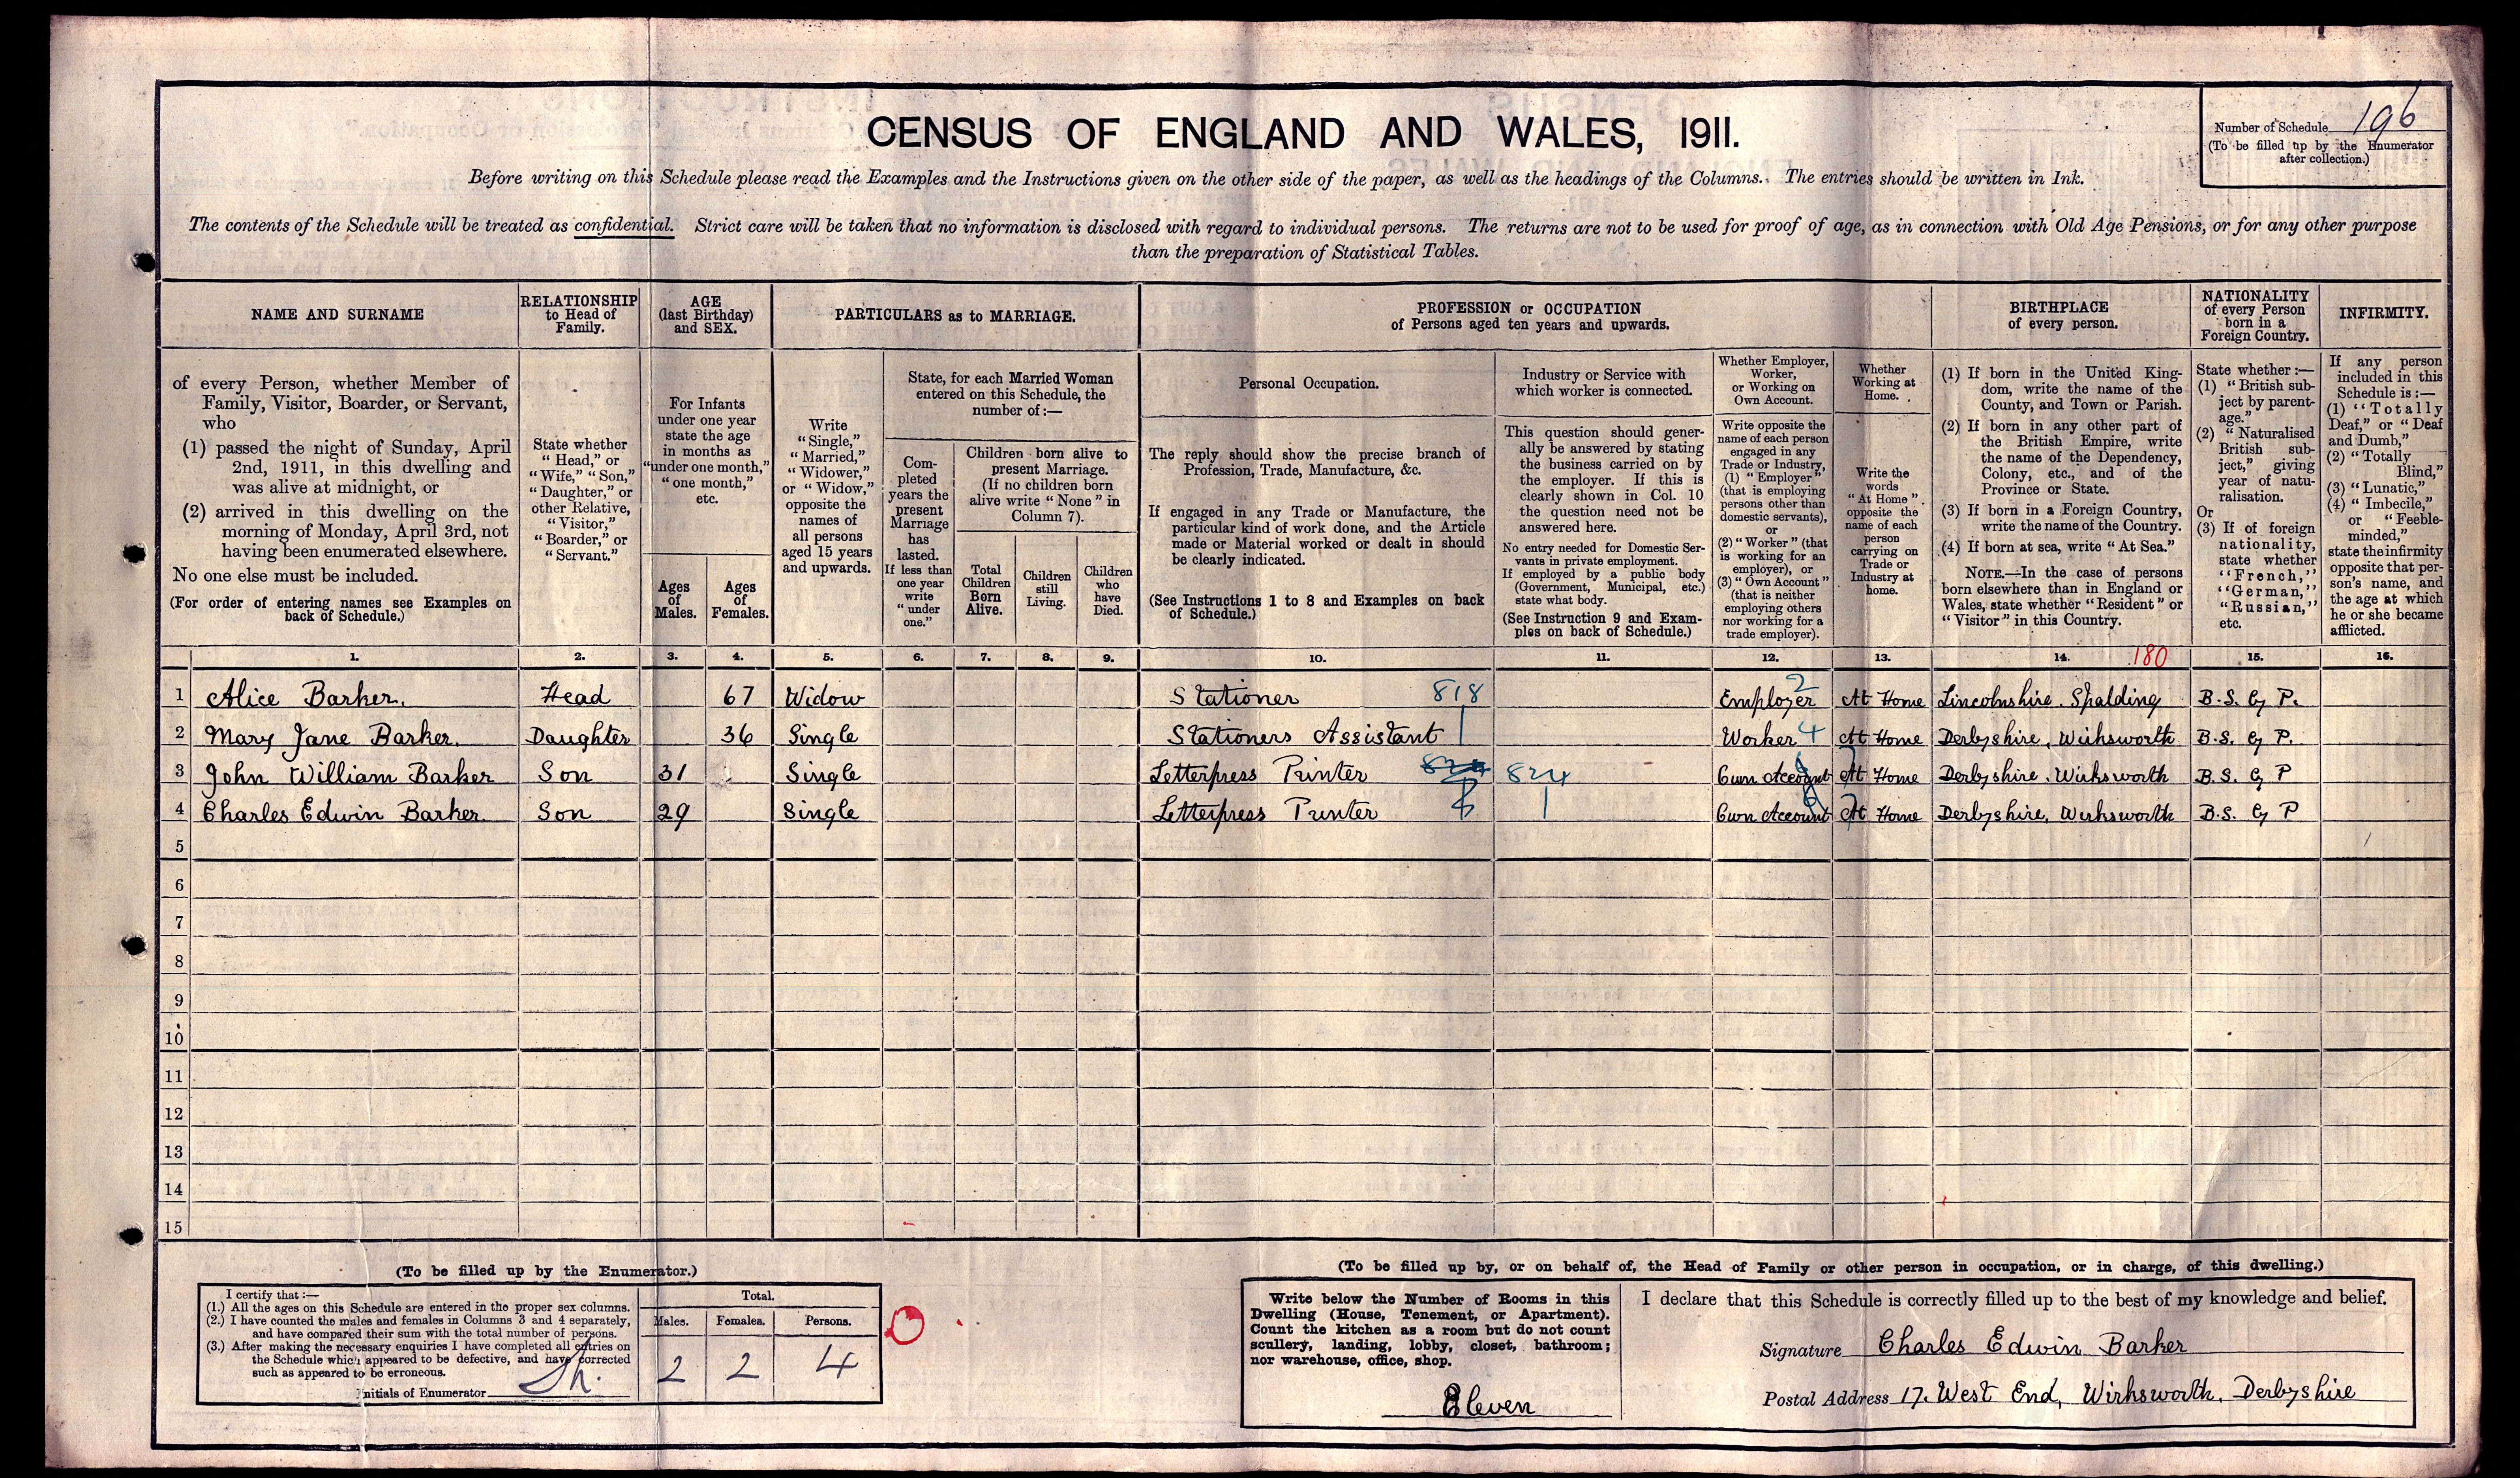 CENSUS OF ENGLAND AND WALES, 1911.
Number of Schedule 196
(To be filled up by the Enumerator
after collection.)
Before writing on this Schedule please read the Examples and the Instructions given on the other side of the paper, as well as the headings of the Columns. The entries should be written in Ink.
The contents of the Schedule will be treated as confidential. Strict care will be taken that no information is disclosed with regard to individual persons. The returns are not to be used for proof of age, as in connection with Old Age Pensions, or for any other purpose
than the preparation of Statistical Tables.
NAME AND SURNAME
of every Person, whether Member of
Family, Visitor, Boarder, or Servant,
who
(1) passed the night of Sunday, April
2nd, 1911, in this dwelling and
was alive at midnight, or
(2) arrived in this dwelling on the
morning of Monday, April 3rd, not
having been enumerated elsewhere.
No one else must be included.
(For order of entering names see Examples on
back of Schedule.)
RELATIONSHIP
to Head of
Family.
State whether
"Head," or
"Wife," "Son,"
"Daughter," or
other Relative,
"Visitor,"
"Boarder," or
"Servant."
AGE
(last Birthday)
and SEX.
For Infants
under one year
state the age
in months as
"under one month,"
"one month,"
etc.
Ages
of
Males.
Ages
of
Females.
PARTICULARS as to MARRIAGE.
Write
"Single,"
"Married,"
"Widower,"
or "Widow,"
opposite the
names of
all persons
aged 15 years
and upwards.
State, for each Married Woman
entered on this Schedule, the
number of:—
Com-
pleted
years the
present
Marriage
has
lasted.
If less than
one year
write
"under
one."
Children born alive to
present Marriage.
(If no children born
alive write "None" in
Column 7).
Total
Children
Born
Alive.
Children
still
Living.
Children
who
have
Died.
PROFESSION or OCCUPATION
of Persons aged ten years and upwards.
Personal Occupation.
The reply should show the precise branch of
Profession, Trade, Manufacture, &c.
If engaged in any Trade or Manufacture, the
particular kind of work done, and the Article
made or Material worked or dealt in should
be clearly indicated.
(See Instructions 1 to 8 and Examples on back
of Schedule.)
Industry or Service with
which worker is connected.
This question should gener-
ally be answered by stating
the business carried on by
the employer. If this is
clearly shown in Col. 10
the question need not be
answered here.
No entry needed for Domestic Ser-
vants in private employment.
If employed by a public body
(Government, Municipal, etc.)
state what body.
(See Instruction 9 and Exam-
ples on back of Schedule.)
Whether Employer,
Worker,
or Working on
Own Account.
Write opposite the
name of each person
engaged in any
Trade or Industry,
(1) "Employer"
(that is employing
persons other than
domestic servants),
or
(2) "Worker" (that
is working for an
employer), or
(3) "Own Account"
(that is neither
employing others
nor working for a
trade employer).
Whether
Working at
Home.
Write the
words
"At Home"
opposite the
name of each
person
carrying on
Trade or
Industry at
home.
BIRTHPLACE
of every person.
(1) If born in the United King-
dom, write the name of the
County, and Town or Parish.
(2) If born in any other part of
the British Empire, write
the name of the Dependency,
Colony, etc., and of the
Province or State.
(3) If born in a Foreign Country,
write the name of the Country.
(4) If born at sea, write "At Sea."
NOTE.—In the case of persons
born elsewhere than in England or
Wales, state whether "Resident" or
"Visitor" in this Country.
NATIONALITY
of every Person
born in a
Foreign Country.
State whether:—
(1) "British sub-
ject by parent-
age."
(2) "Naturalised
British sub-
ject," giving
year of natu-
ralisation.
Or
(3) If of foreign
nationality,
state whether
"French,"
"German,"
"Russian,"
etc.
INFIRMITY.
If any person
included in this
Schedule is:—
(1) "Totally
Deaf," or "Deaf
and Dumb,"
(2) "Totally
Blind,"
(3) "Lunatic,"
(4) "Imbecile,"
or "Feeble-
minded,"
state the infirmity
opposite that per-
son's name, and
the age at which
he or she became
afflicted.
1. 2. 3. 4. 5. 6. 7. 8. 9. 10. 11. 12. 13. 14. 180 15. 16.
1 Alice Barker. Head 67 Widow Stationer 818 Employer 2 At Home Lincolnshire. Spalding B.S. by P.
2 Mary Jane Barker. Daughter 36 Single Stationers Assistant Worker 4 At Home Derbyshire, Wirksworth B.S. by P.
3 John William Barker Son 31 Single Letterpress Printer 824 Own Account At Home Derbyshire. Wirksworth B.S. by P
4 Charles Edwin Barker. Son 29 Single Letterpress Printer Own Account At Home Derbyshire, Wirksworth B.S. by P
5
6
7
8
9
10
11
12
13
14
15
(To be filled up by the Enumerator.)
I certify that:—
(1.) All the ages on this Schedule are entered in the proper sex columns.
(2.) I have counted the males and females in Columns 3 and 4 separately,
and have compared their sum with the total number of persons.
(3.) After making the necessary enquiries I have completed all entries on
the Schedule which appeared to be defective, and have corrected
such as appeared to be erroneous.
Initials of Enumerator
Total.
Males. Females. Persons.
2 2 4
(To be filled up by, or on behalf of, the Head of Family or other person in occupation, or in charge, of this dwelling.)
Write below the Number of Rooms in this
Dwelling (House, Tenement, or Apartment).
Count the kitchen as a room but do not count
scullery, landing, lobby, closet, bathroom;
nor warehouse, office, shop.
Eleven
I declare that this Schedule is correctly filled up to the best of my knowledge and belief.
Signature Charles Edwin Barker
Postal Address 17. West End, Wirksworth. Derbyshire